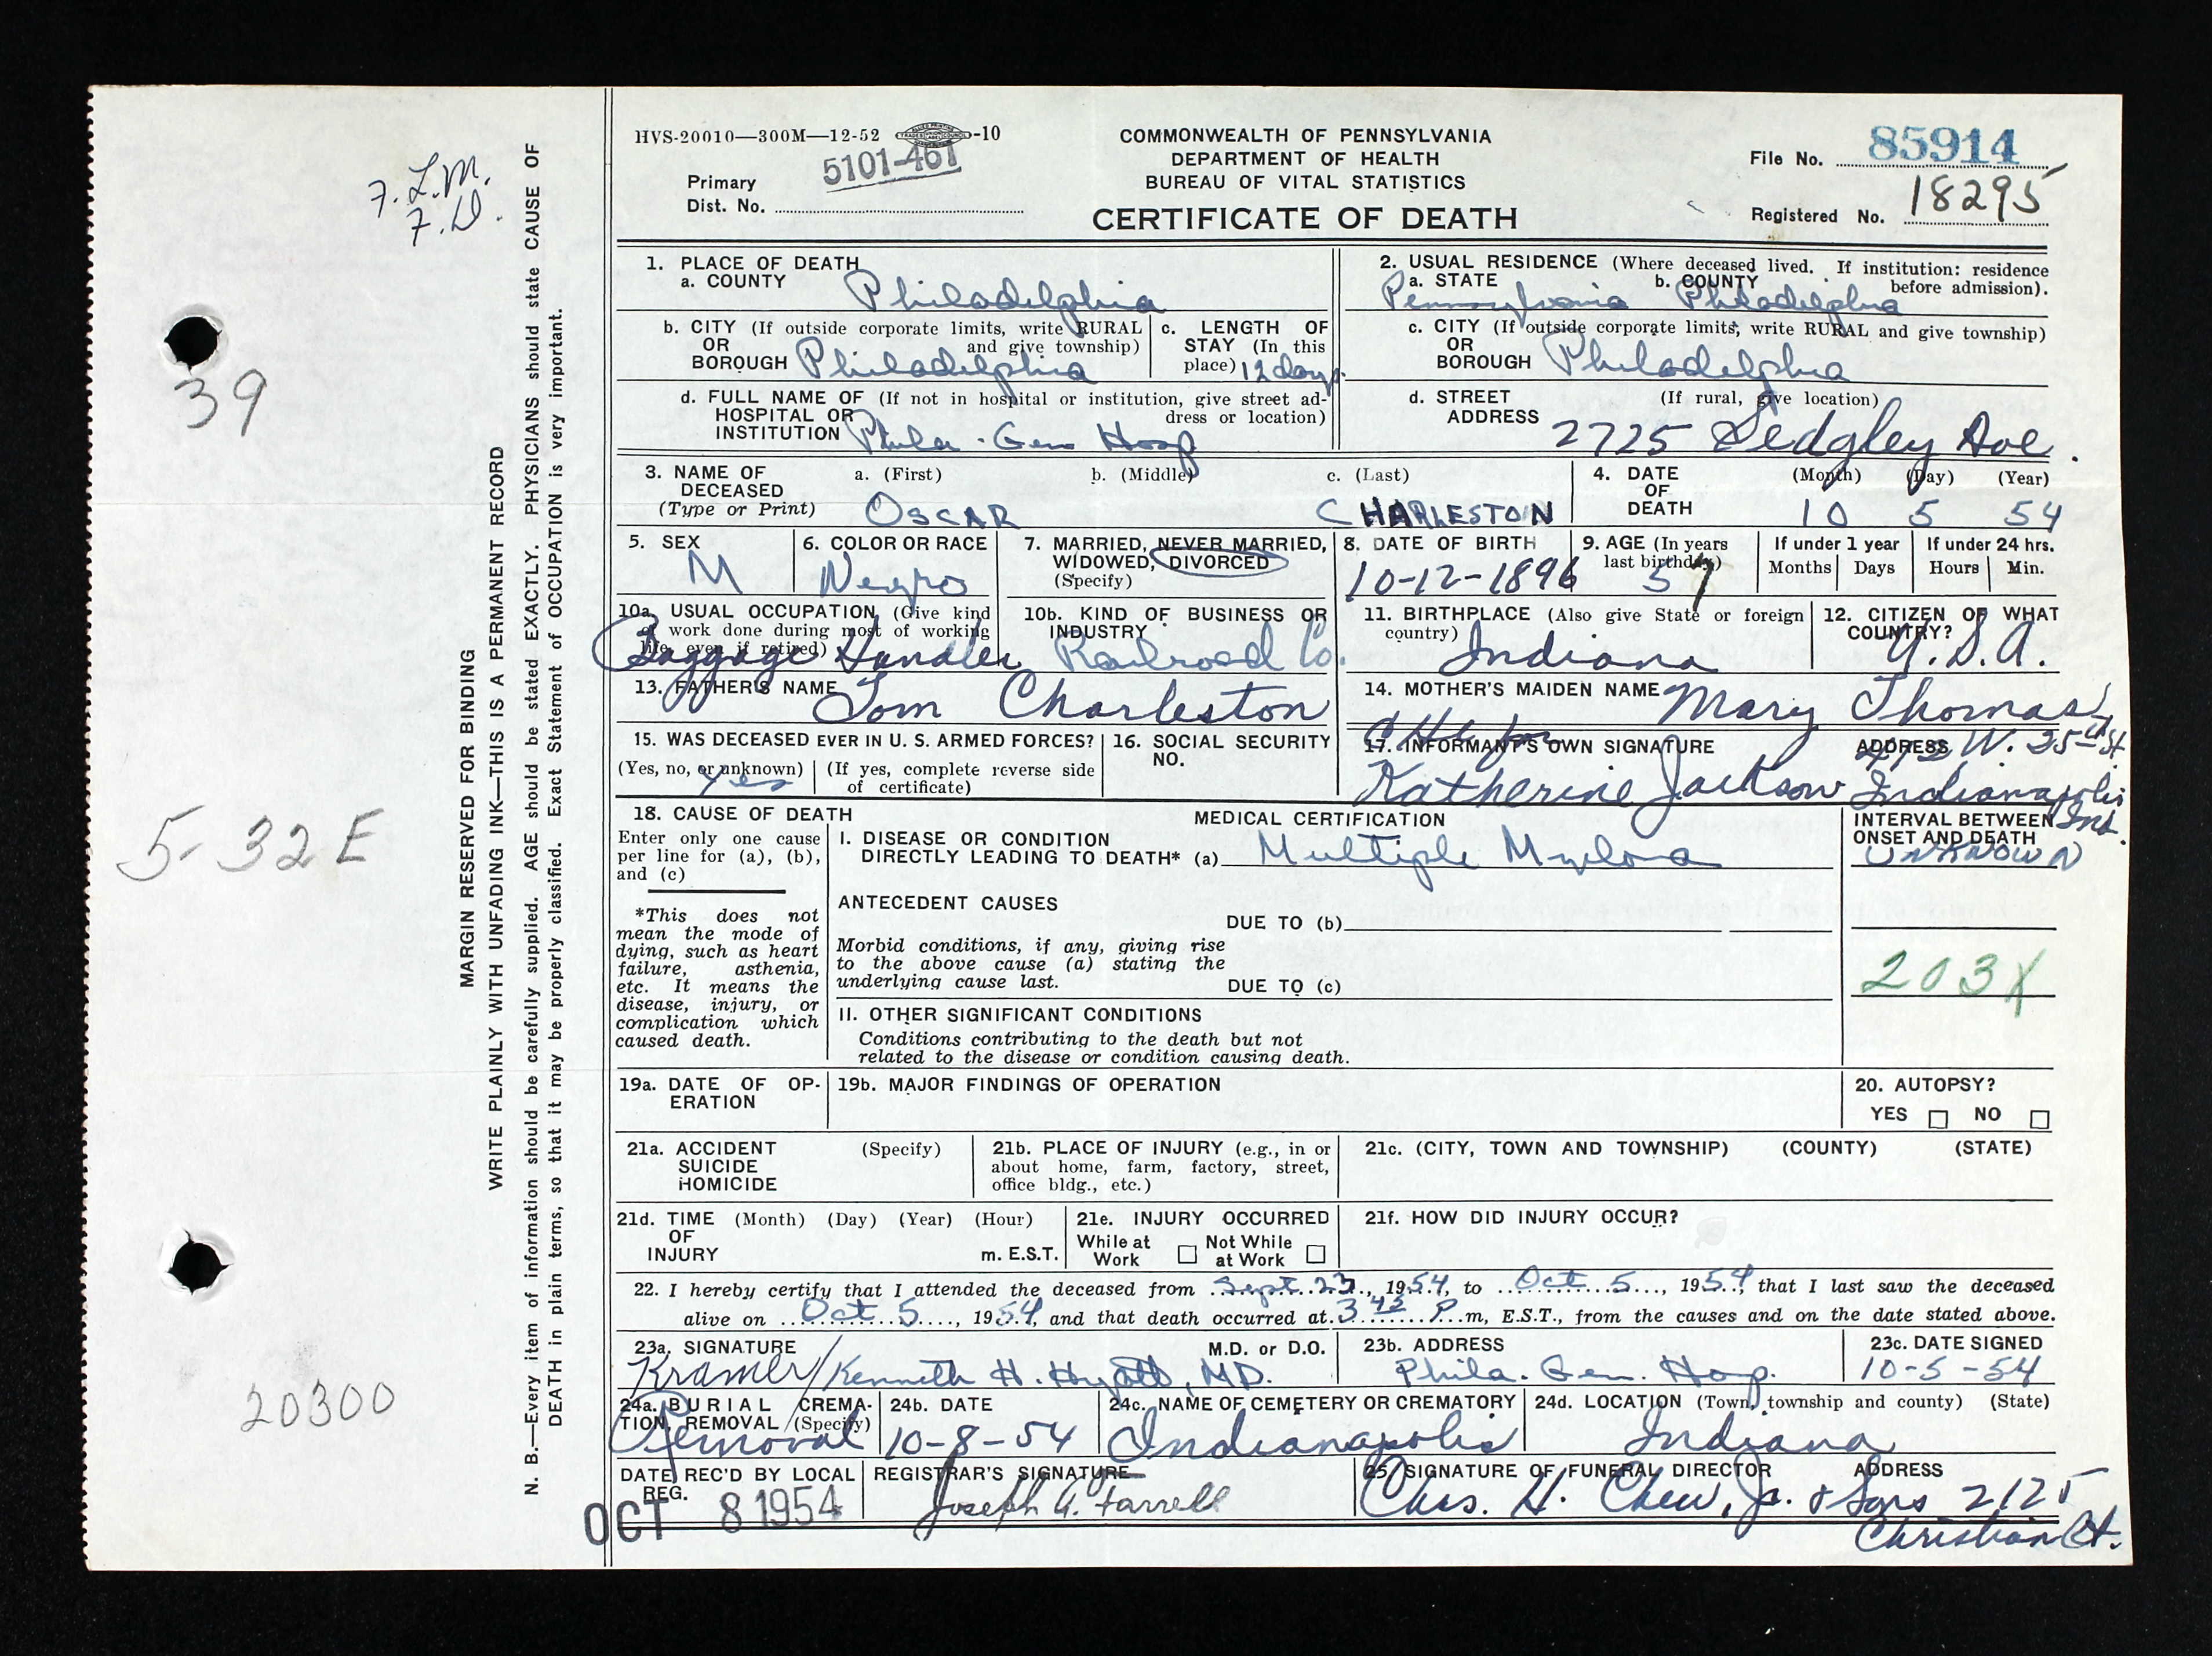 HVS-20010—300M—12-52 -10
5101-461
Primary
Dist. No.
COMMONWEALTH OF PENNSYLVANIA
DEPARTMENT OF HEALTH
BUREAU OF VITAL STATISTICS
CERTIFICATE OF DEATH
File No. 85914
Registered No. 18295
7.L.M.
7.D.
39
5-32E
20300
MARGIN RESERVED FOR BINDING
WRITE PLAINLY WITH UNFADING INK—THIS IS A PERMANENT RECORD
N. B.—Every item of information should be carefully supplied. AGE should be stated EXACTLY. PHYSICIANS should state CAUSE OF
DEATH in plain terms, so that it may be properly classified. Exact Statement of OCCUPATION is very important.
1. PLACE OF DEATH
a. COUNTY Philadelphia
2. USUAL RESIDENCE (Where deceased lived. If institution: residence
before admission).
a. STATE Pennsylvania b. COUNTY Philadelphia
b. CITY (If outside corporate limits, write RURAL
OR and give township)
BOROUGH Philadelphia
c. LENGTH OF
STAY (In this
place) 12 days
c. CITY (If outside corporate limits, write RURAL and give township)
OR
BOROUGH Philadelphia
d. FULL NAME OF (If not in hospital or institution, give street ad-
HOSPITAL OR dress or location)
INSTITUTION Phila. Gen Hosp
d. STREET (If rural, give location)
ADDRESS 2725 Sedgley Ave.
3. NAME OF a. (First) b. (Middle) c. (Last)
DECEASED
(Type or Print) OSCAR CHARLESTON
4. DATE (Month) (Day) (Year)
OF
DEATH 10 5 54
5. SEX
M
6. COLOR OR RACE
Negro
7. MARRIED, NEVER MARRIED,
WIDOWED, DIVORCED
(Specify)
8. DATE OF BIRTH
10-12-1896
9. AGE (In years
last birthday)
57
If under 1 year
Months Days
If under 24 hrs.
Hours Min.
10a. USUAL OCCUPATION (Give kind
of work done during most of working
life, even if retired)
Baggage Handler
10b. KIND OF BUSINESS OR
INDUSTRY
Railroad Co.
11. BIRTHPLACE (Also give State or foreign
country)
Indiana
12. CITIZEN OF WHAT
COUNTRY?
U.S.A.
13. FATHER'S NAME
Tom Charleston
14. MOTHER'S MAIDEN NAME
Mary Thomas
15. WAS DECEASED EVER IN U. S. ARMED FORCES?
(Yes, no, or unknown) (If yes, complete reverse side
of certificate)
Yes
16. SOCIAL SECURITY
NO.
17. INFORMANT'S OWN SIGNATURE ADDRESS W. 25th St.
Katherine Jackson Indianapolis
Ind.
18. CAUSE OF DEATH
Enter only one cause
per line for (a), (b),
and (c)
*This does not
mean the mode of
dying, such as heart
failure, asthenia,
etc. It means the
disease, injury, or
complication which
caused death.
MEDICAL CERTIFICATION
I. DISEASE OR CONDITION
DIRECTLY LEADING TO DEATH* (a) Multiple Myeloma
ANTECEDENT CAUSES
DUE TO (b)
Morbid conditions, if any, giving rise
to the above cause (a) stating the
underlying cause last.
DUE TO (c)
II. OTHER SIGNIFICANT CONDITIONS
Conditions contributing to the death but not
related to the disease or condition causing death.
INTERVAL BETWEEN
ONSET AND DEATH
UNKNOWN
203X
19a. DATE OF OP-
ERATION
19b. MAJOR FINDINGS OF OPERATION
20. AUTOPSY?
YES NO
21a. ACCIDENT (Specify)
SUICIDE
HOMICIDE
21b. PLACE OF INJURY (e.g., in or
about home, farm, factory, street,
office bldg., etc.)
21c. (CITY, TOWN AND TOWNSHIP) (COUNTY) (STATE)
21d. TIME (Month) (Day) (Year) (Hour)
OF
INJURY m. E.S.T.
21e. INJURY OCCURRED
While at Not While
Work at Work
21f. HOW DID INJURY OCCUR?
22. I hereby certify that I attended the deceased from Sept. 23, 1954, to Oct. 5, 1954, that I last saw the deceased
alive on Oct 5, 1954, and that death occurred at 3 45 P m, E.S.T., from the causes and on the date stated above.
23a. SIGNATURE M.D. or D.O.
Kramer/Kenneth H. Hyatt, MD.
23b. ADDRESS
Phila. Gen. Hosp.
23c. DATE SIGNED
10-5-54
24a. BURIAL CREMA-
TION, REMOVAL (Specify)
Removal
24b. DATE
10-8-54
24c. NAME OF CEMETERY OR CREMATORY
Indianapolis
24d. LOCATION (Town, township and county) (State)
Indiana
DATE REC'D BY LOCAL
REG.
OCT 8 1954
REGISTRAR'S SIGNATURE
Joseph A. Farrell
25. SIGNATURE OF FUNERAL DIRECTOR ADDRESS
Chas. H. Chew, Jr. & Sons 2125
Christian St.